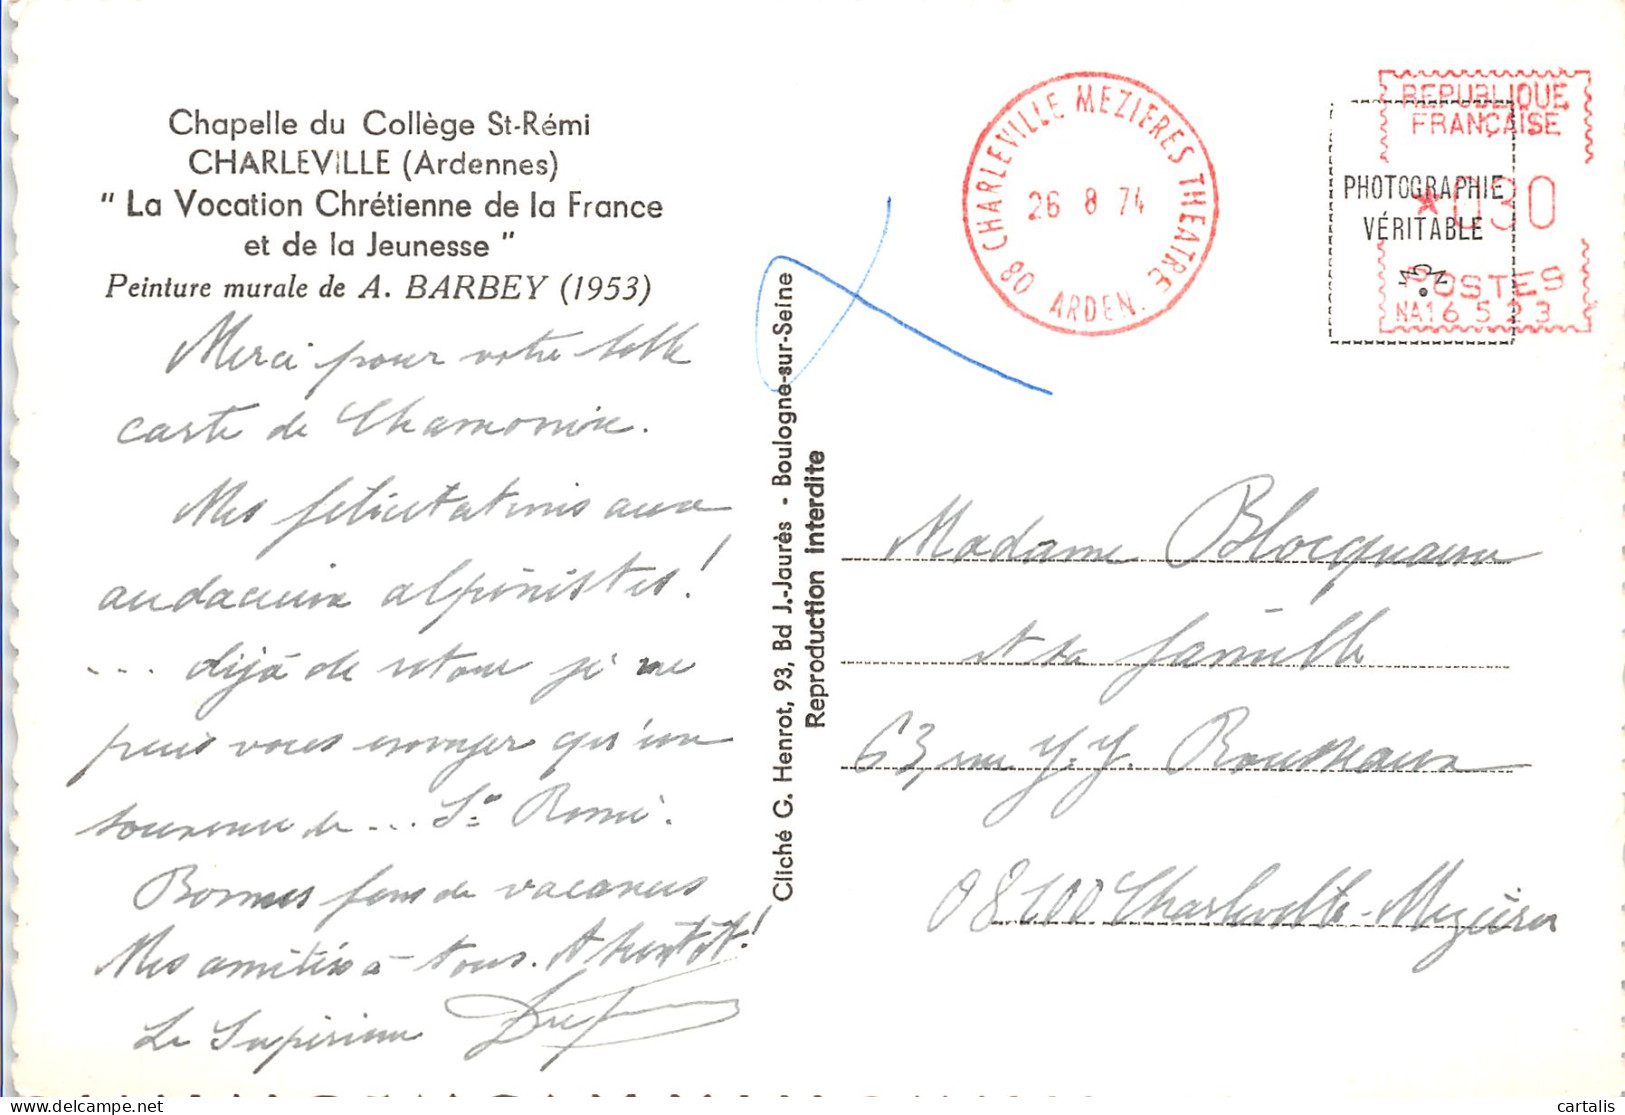 Chapelle du Collège St-Rémi
CHARLEVILLE (Ardennes)
" La Vocation Chrétienne de la France
et de la Jeunesse "
Peinture murale de A. BARBEY (1953)
Merci pour votre belle
carte de Chamonix.
Mes félicitations aux
audacieux alpinistes!
... déjà de retour je ne
puis vous envoyer qu'un
souvenir de ... St Remi.
Bonnes fins de vacances
Mes amitiés à tous. A bientôt!
Le Supérieur
Cliché G. Henrot, 93, Bd J.-Jaurès - Boulogne-sur-Seine
Reproduction interdite
08 CHARLEVILLE MEZIERES THEATRE
26 8 74
ARDEN.
REPUBLIQUE
FRANÇAISE
★030
POSTES
NA16523
PHOTOGRAPHIE
VÉRITABLE
Madame Blocquaux
et sa famille
63, rue J. J. Rousseau
08100 Charleville-Mézières
cartalis